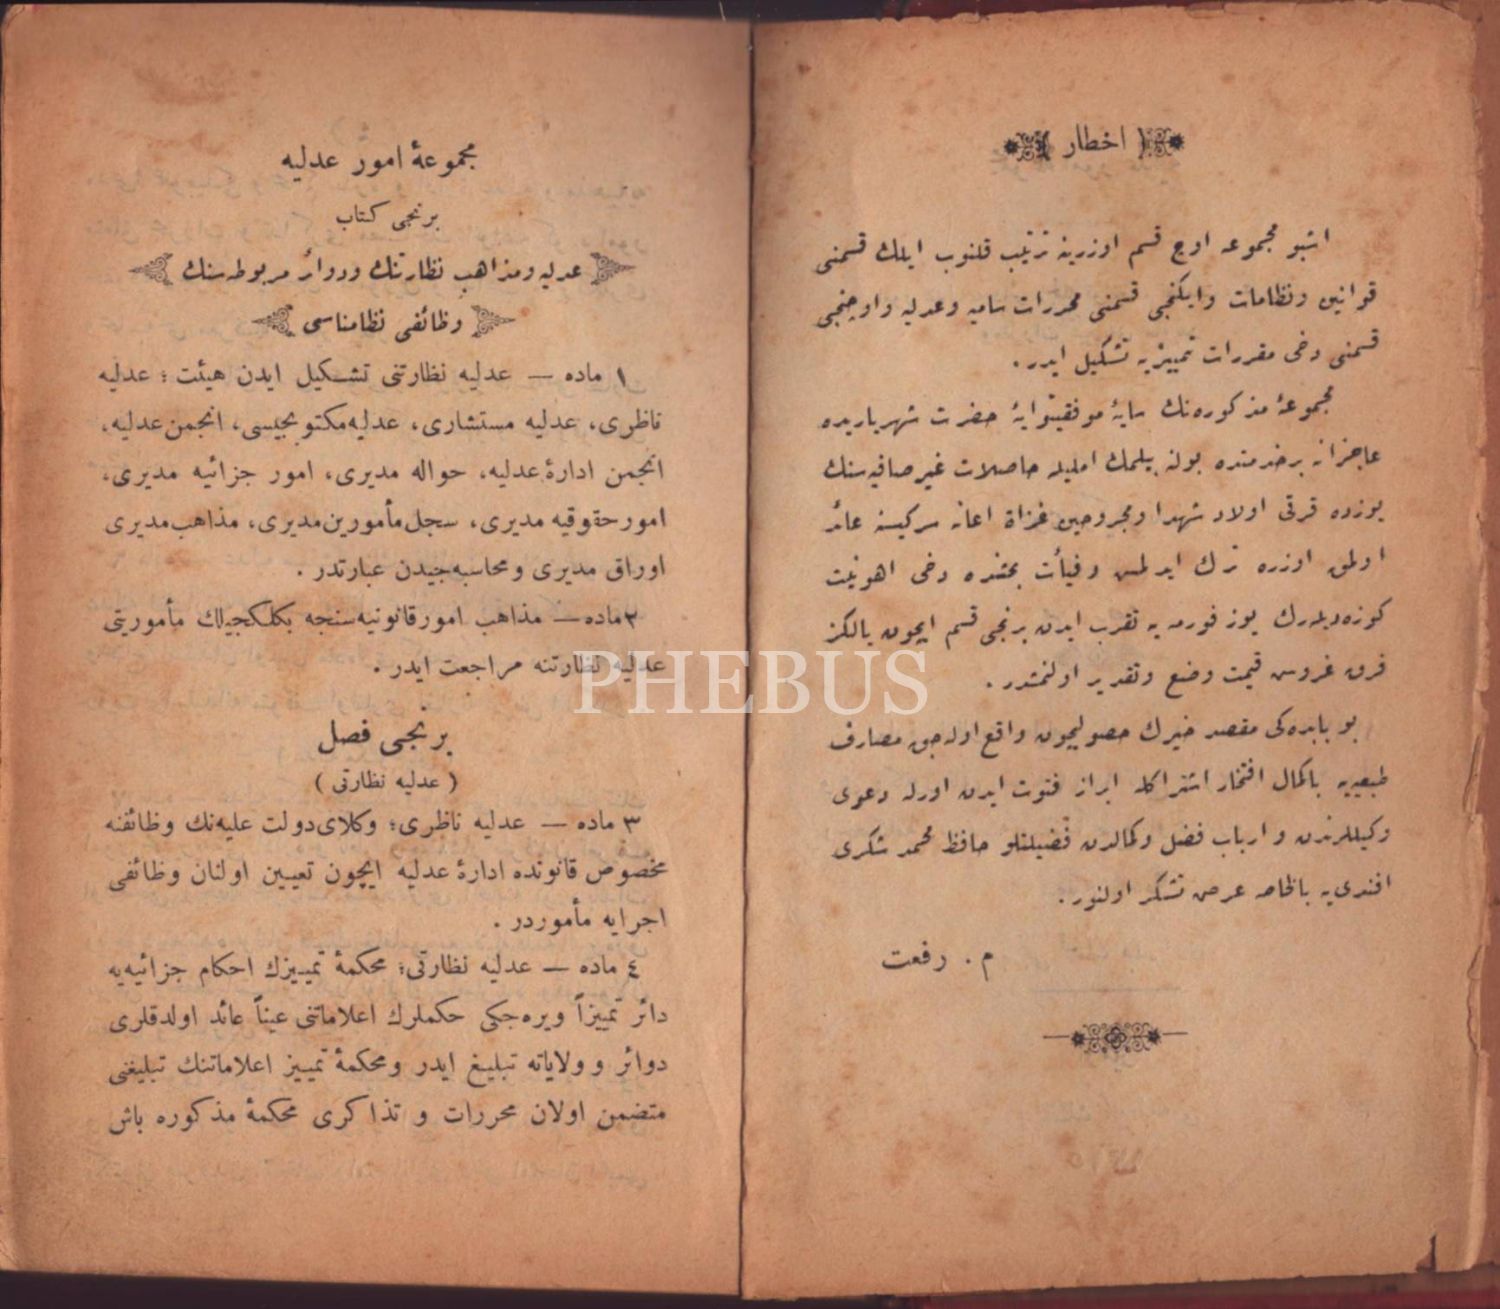 اخطار
اشبو مجموعه اوچ قسم اوزرینه ترتیب قلنوب ایلك قسمنی
قوانین ونظامات وایكنجی قسمنی محررات سامیه وعدلیه واوچنجی
قسمنی دخی مقررات تمییزیه تشكیل ایدر .
مجموعۀ مذكوره‌نك سایۀ موفقیتوایۀ حضرت شهریاریده
عاجزانه برخدمتده بولنه بیلمك املیله حاصلات غیرصافیه‌سنك
یوزده قرقی اولاد شهدا ومجروحین غزاة اعانه سركیسنه عائد
اولمق اوزره ترك ایدلمش وفیأت بحثنده دخی اهونیت
كوزه‌دیله‌رك یوز فورمه‌یه تقرب ایدن برنجی قسم ایچون یالكز
قرق غروش قیمت وضع وتقدیر اولنمشدر .
بو بابده‌كی مقصد خیرك حصولیچون واقع اوله‌جق مصارف
طبعییه‌ باكمال افتخار اشتراكله ابراز فتوت ایدن اورله دعوی
وكیللرندن و ارباب فضل وكمالدن فضیلتلو حافظ محمد شكری
افندی‌یه بالخاصه عرض تشكر اولنور .
م . رفعت
مجموعۀ امور عدلیه
برنجی كتاب
عدلیه ومذاهب نظارتنك ودوائر مربوطه‌سنك
وظائفی نظامناسی
١ ماده — عدلیه نظارتنی تشكیل ایدن هیئت ؛ عدلیه
ناظری، عدلیه مستشاری، عدلیه مكتوبجیسی، انجمن عدلیه،
انجمن ادارۀ عدلیه، حواله مدیری، امور جزائیه مدیری،
امور حقوقیه مدیری، سجل مأمورین مدیری، مذاهب مدیری
اوراق مدیری ومحاسبه‌جیدن عبارتدر .
٢ ماده — مذاهب امور قانونیه‌سنجه بكلكجیلك مأموریتی
عدلیه نظارتنه مراجعت ایدر .
برنجی فصل
( عدلیه نظارتی )
٣ ماده — عدلیه ناظری؛ وكلای دولت علیه‌نك وظائفنه
مخصوص قانونده ادارۀ عدلیه ایچون تعیین اولنان وظائفی
اجرایه مأموردر .
٤ ماده — عدلیه نظارتی؛ محكمۀ تمییزك احكام جزائیه‌یه
دائر تمییزاً ویره‌جكی حكملرك اعلاماتنی عیناً عائد اولدقلری
دوائر و ولایاته تبلیغ ایدر ومحكمۀ تمییز اعلاماتنك تبلیغنی
متضمن اولان محررات و تذاكری محكمۀ مذكوره باش
PHEBUS